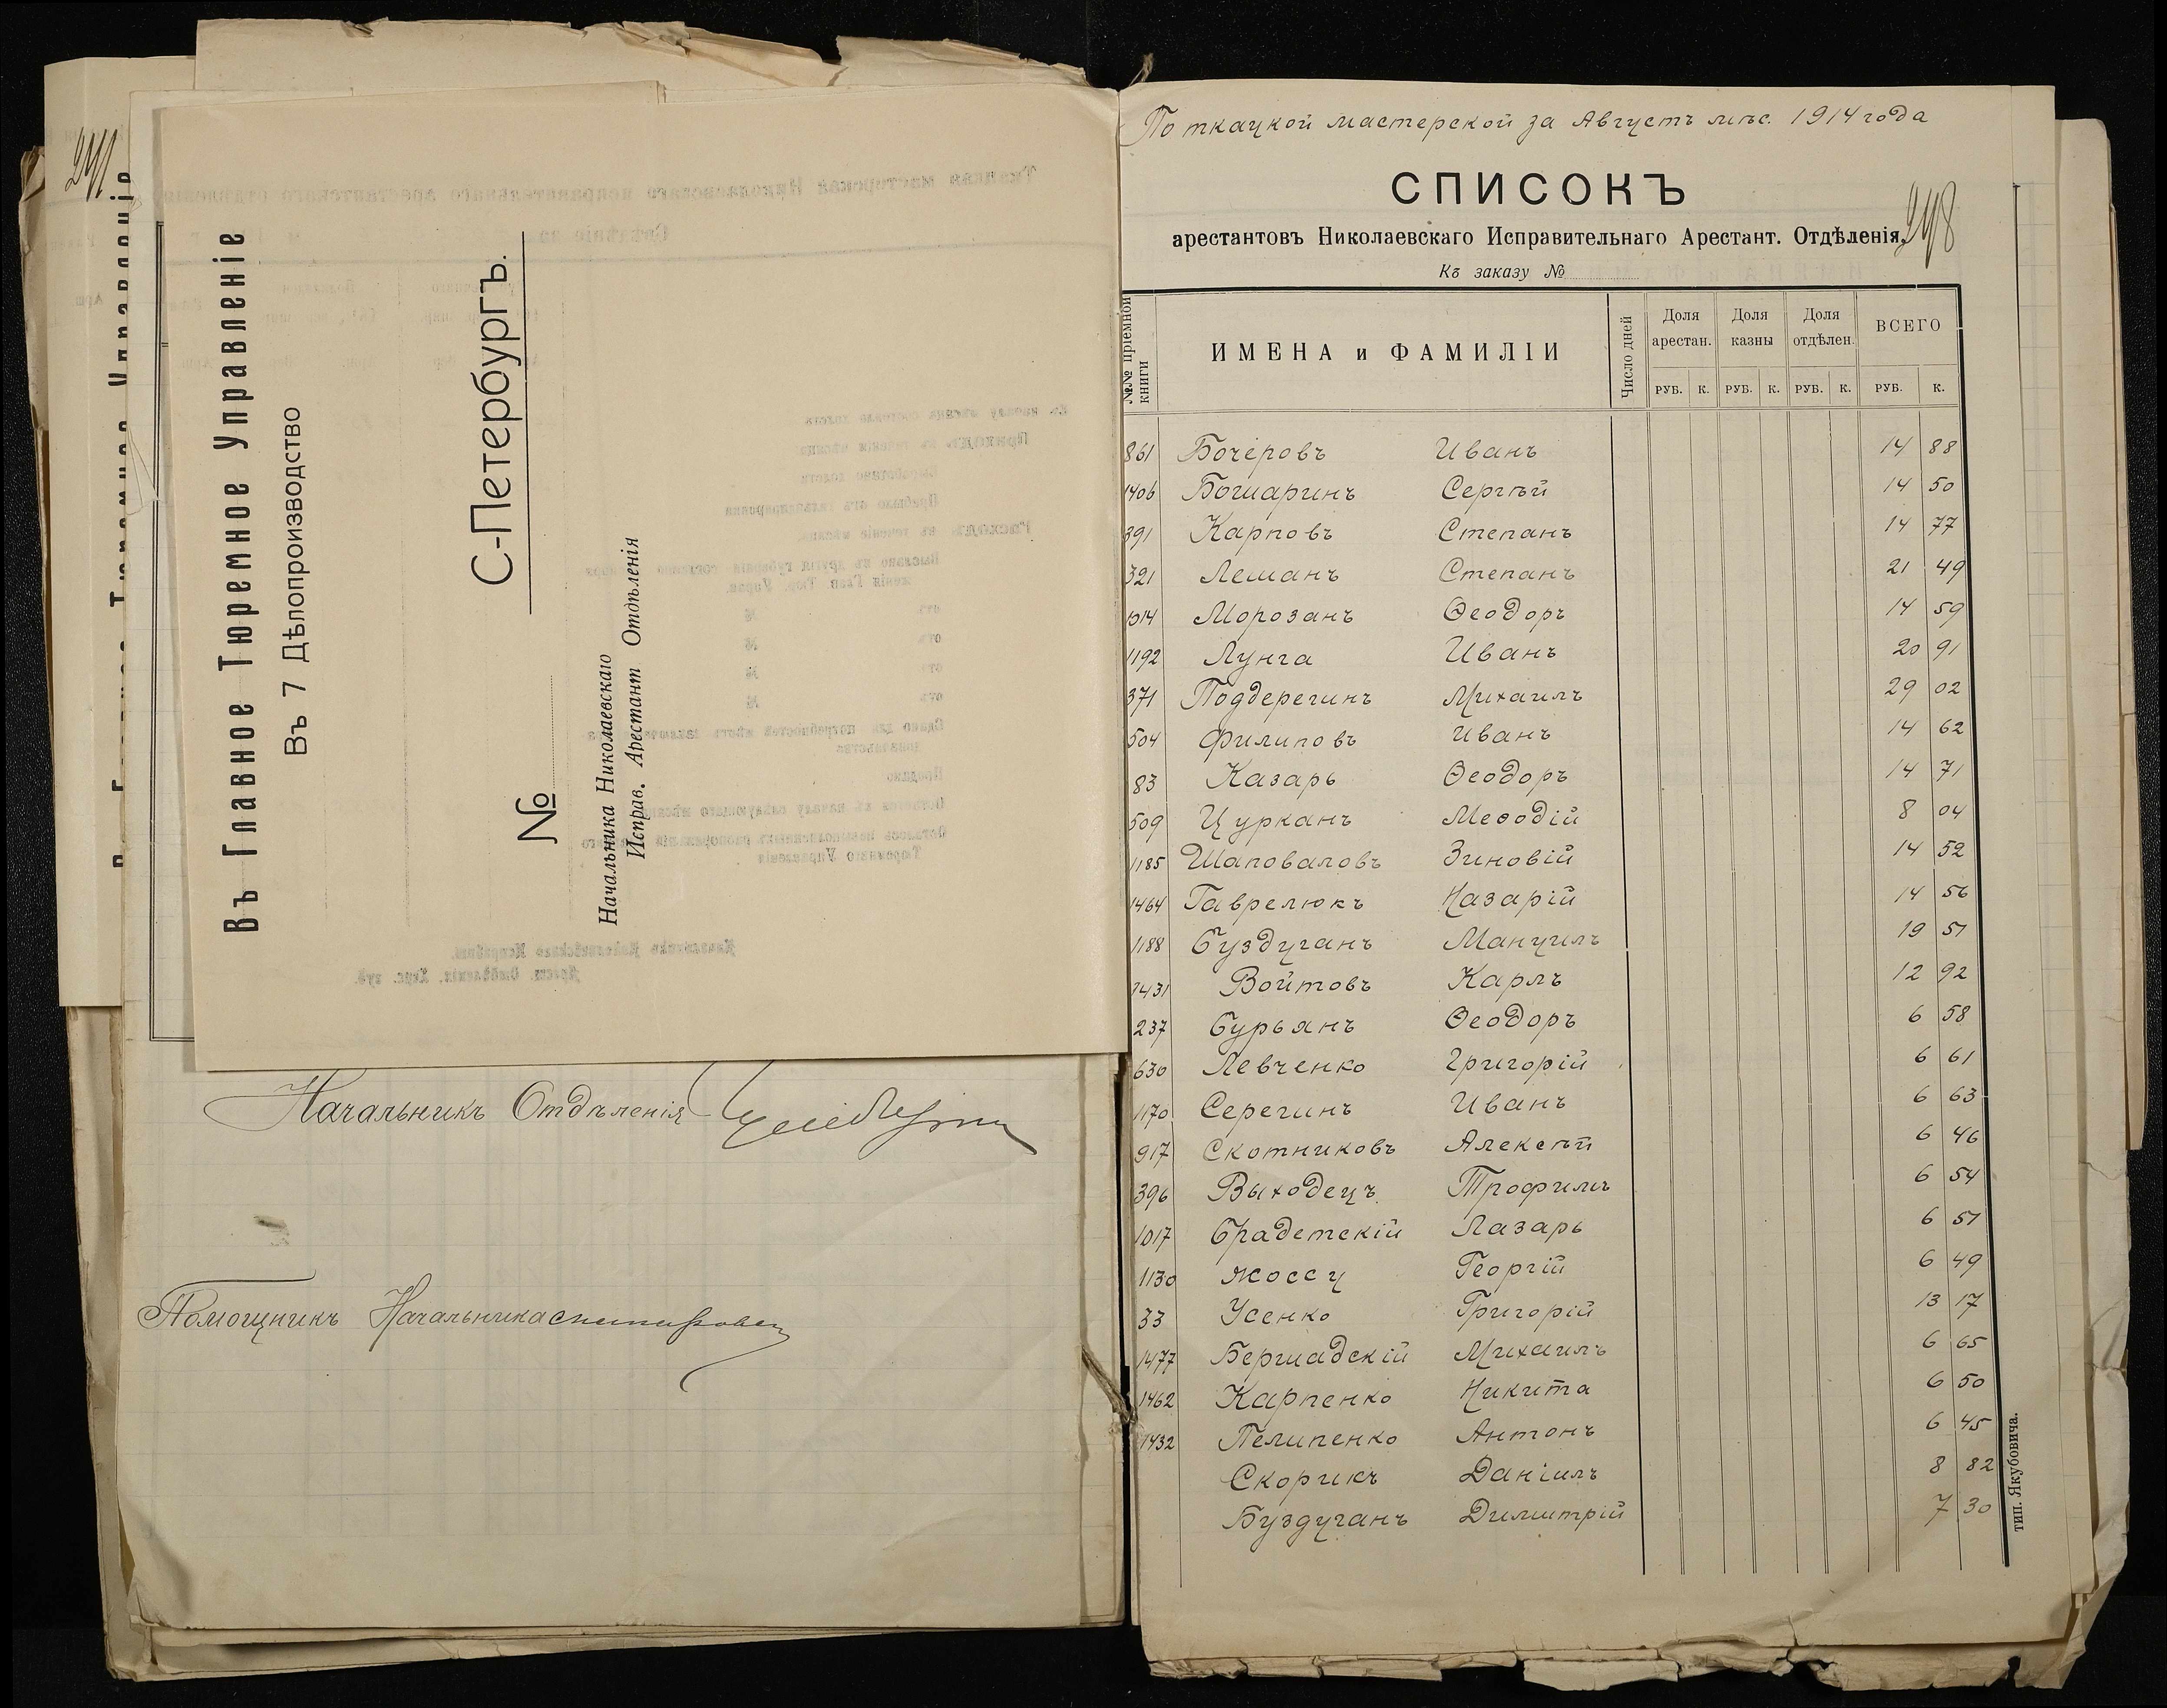 241
Въ Главное Тюремное Управленіе
Въ 7 Дѣлопроизводство
С-Петербургъ.
№
Начальника Николаевскаго
Исправ. Арестант Отдѣленія
Начальникъ Отдѣленія
Помощникъ Начальника
По ткацкой мастерской за Августъ мѣс. 1914 года
СПИСОКЪ
248
арестантовъ Николаевскаго Исправительнаго Арестант. Отдѣленія,
Къ заказу №
№№ пріемной книги ИМЕНА и ФАМИЛІИ Число дней Доля арестан. Доля казны Доля отдѣлен. ВСЕГО
РУБ. К. РУБ. К. РУБ. К. РУБ. К.
861 Бочеровъ Иванъ 14 88
1406 Бошаринъ Сергѣй 14 50
391 Карповъ Степанъ 14 77
321 Леманъ Степанъ 21 49
1014 Морозанъ Ѳеодоръ 14 59
1192 Лунга Иванъ 20 91
371 Поддерегинъ Михаилъ 29 02
504 Филиповъ Иванъ 14 62
83 Казарь Ѳеодоръ 14 71
509 Цурканъ Меѳодій 8 04
1185 Шаповаловъ Зиновій 14 52
1464 Гаврелюкъ Назарій 14 56
1188 Буздуганъ Мануилъ 19 51
1431 Войтовъ Карлъ 12 92
237 Бурьянъ Ѳеодоръ 6 58
630 Левченко Григорій 6 61
1170 Серегинъ Иванъ 6 63
917 Скотниковъ Алексѣй 6 46
396 Выходецъ Трофимъ 6 54
1017 Брадетскій Лазарь 6 51
1130 Жоссу Георгій 6 49
33 Усенко Григорій 13 17
1477 Бершадскій Михаилъ 6 65
1462 Карпенко Никита 6 50
1432 Пелипенко Антонъ 6 45
Скорикъ Даніилъ 8 82
Буздуганъ Димитрій 7 30
тип. Якубовича.